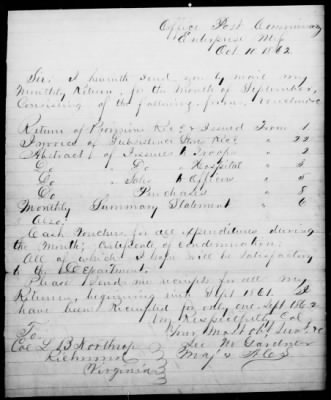 Office Post Commissary
Enterprise Miſ
Oct 10 1862
Sir. I herewith send you by mail my
Monthly Return, for the month of September,
Consisting of the following forms, vouchers &c
Return of Provisions Rec'd & Issued Form 1
Invoice of Subsistence Stores Rec'd " 22
Abstract of Issues to Troops " 2
Do Do Hospital " 3
Do Sales to Officers " 5
Do Purchases " 8
Monthly Summary Statement " 6
Also:
Cash Vouchers for all expenditures during
the Month; Certificate of Condemnation.
All of which I hope will be satisfactory
to the Department.
Please send me receipts for all my
Returns, beginning with Sept 1861. I
have been Receipted for only one Sept 1862
Very Respectfully Col
Your Most Obt Servt &c
To Gardner
Col L B Northrop Maj &
Richmond
Virginia